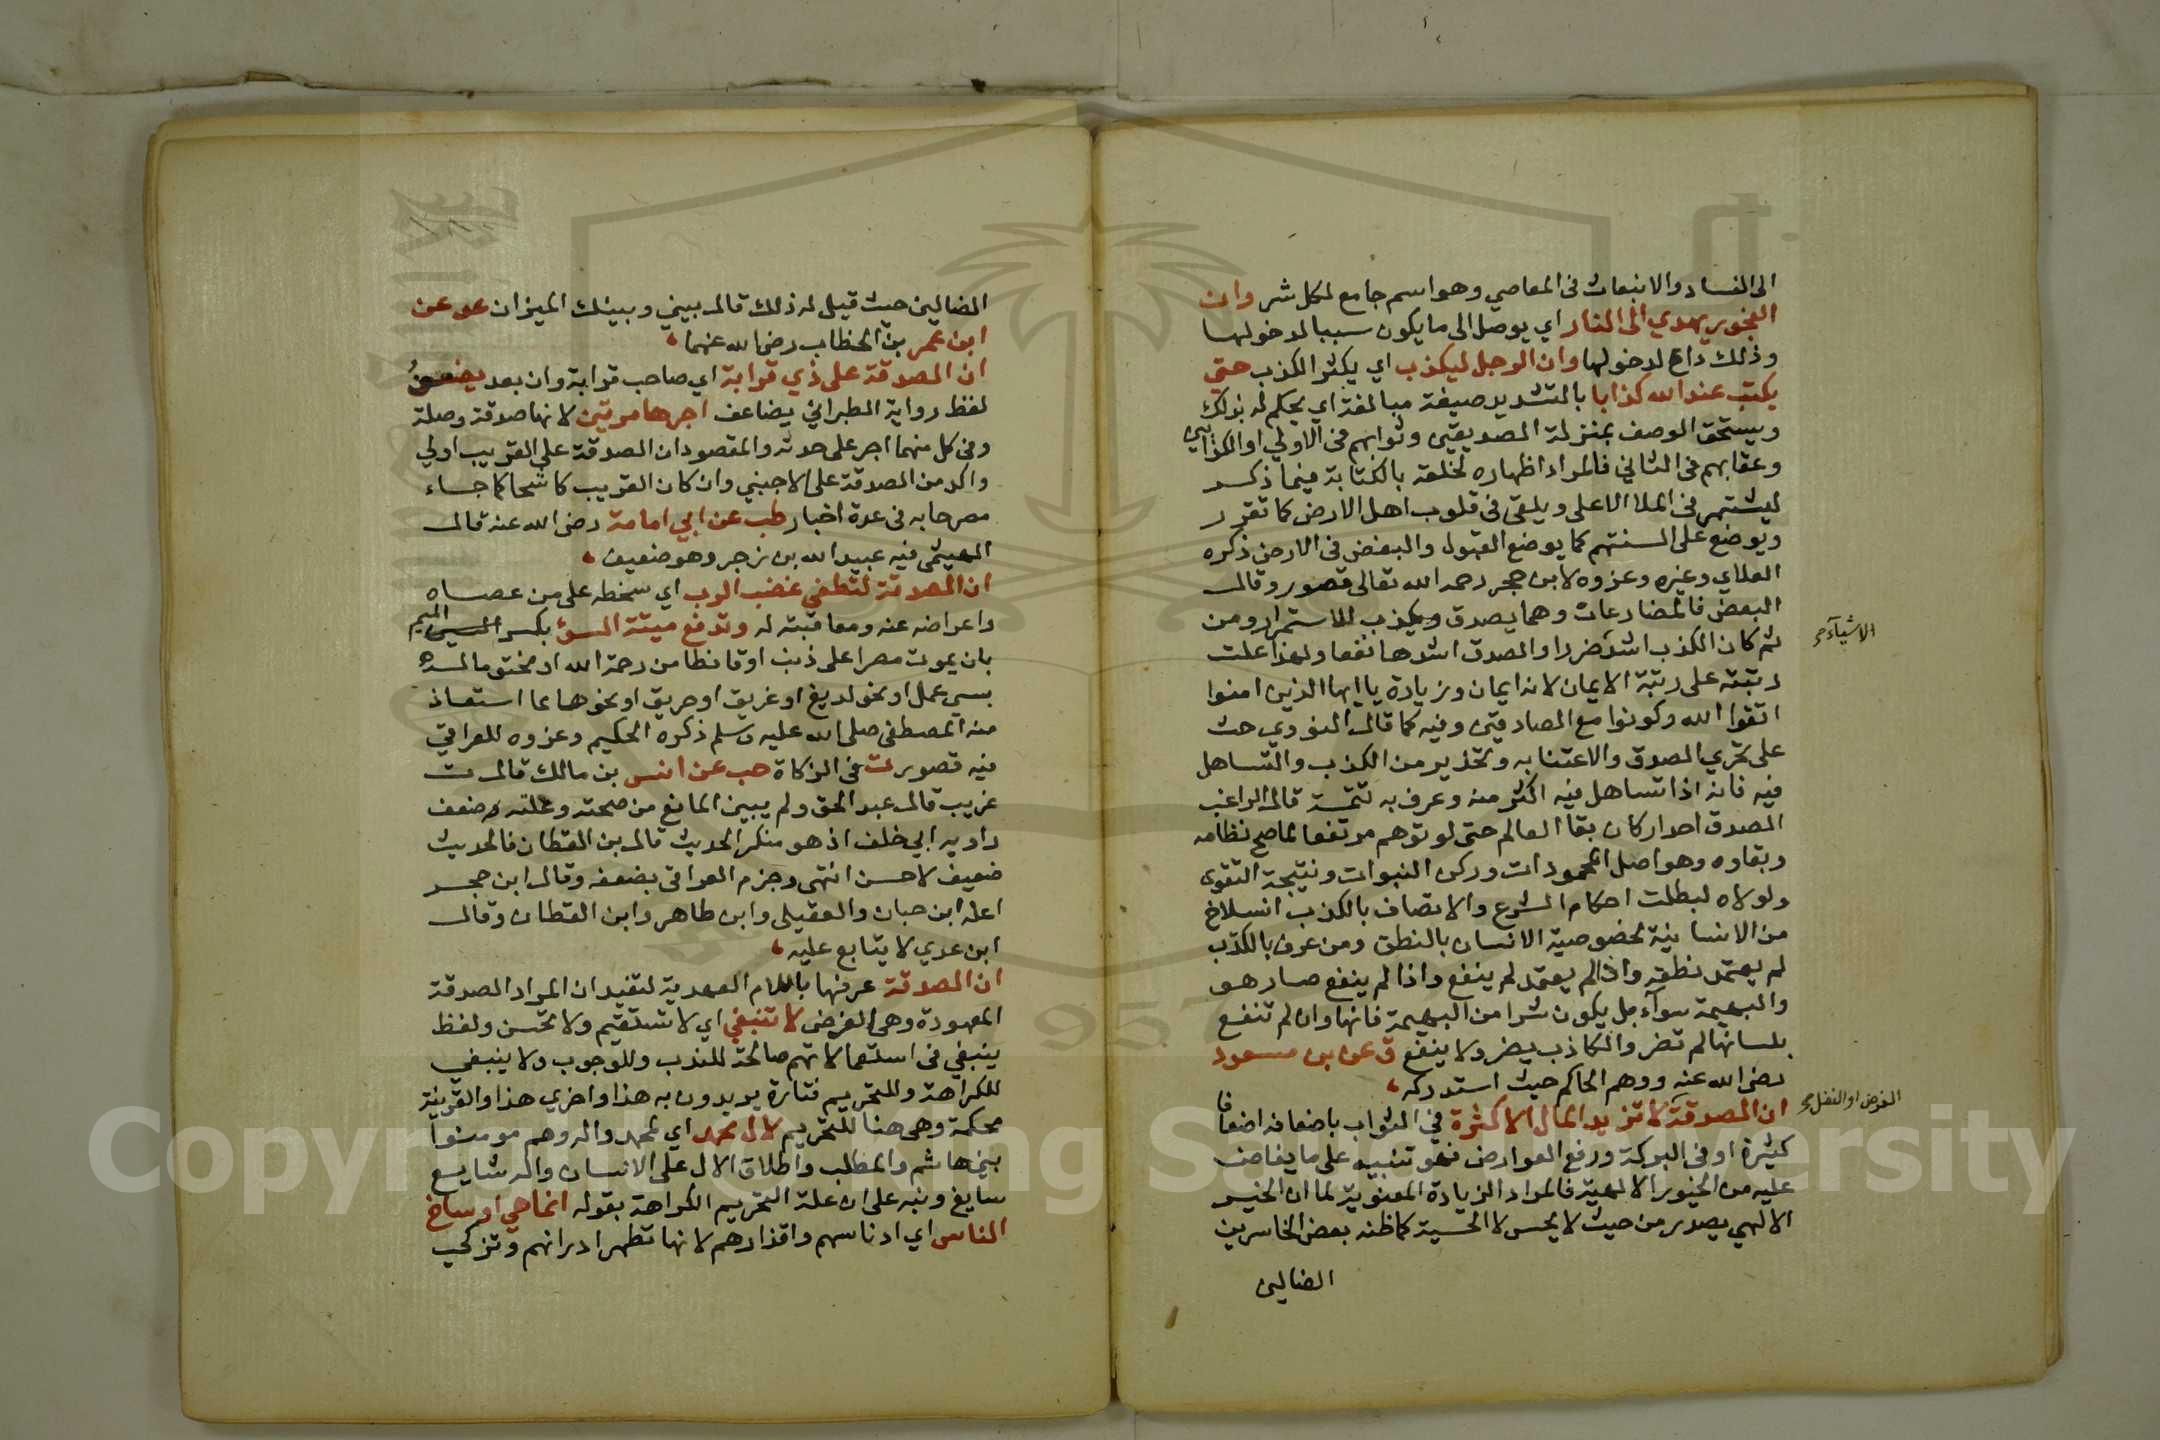 الى الفساد والانبعاث فى المعاصي وهو اسم جامع لكل شر وان
الفجور يهدي الى النار اي يوصل الى ما يكون سببا لدخولها
وذلك داع لدخولها وان الرجل ليكذب اي يكثر الكذب حتي
يكتب عند الله كذابا بالتشديد صيغة مبالغة اي يحكم له بذلك
ويستحق الوصف بمنزلة الصديقين وثوابهم فى الاولي او الكذابين
وعقابهم فى الثاني فالمراد اظهاره لخلقه بالكتابة فيما ذكر
ليشتهر فى الملا الاعلى ويلقى فى قلوب اهل الارض كما تقرر
ويوضع على السنتهم كما يوضع القبول والبغض فى الارض ذكره
العلاي وغيره وعزوه لابن حجر رحمه الله تعالى قصور وقال
البعض فالمضارعان وهما يصدق ويكذب للاستمرار ومن
الاشيآء صح
ثم كان الكذب اشد ضررا والصدق اشدها نفعا ولهذا علت
رتبته على رتبة الايمان لانه ايمان وزيادة يا ايها الذين امنوا
اتقوا الله وكونوا مع الصادقين وفيه كما قال النووي حث
على تحري الصدق والاعتنا به وتحذير من الكذب والتساهل
فيه فانه اذا تساهل فيه اكثر منه وعرف به تتمة قال الراغب
الصدق احد اركان بقا العالم حتى لو توهم مرتفعا لما صح نظامه
وبقاوه وهو اصل المحمودات وركن النبوات ونتيجة التقوى
ولولاه لبطلت احكام الشرع والاتصاف بالكذب انسلاخ
من الانسانية لخصوصية الانسان بالنطق ومن عرف بالكذب
لم يعتمد نطقه واذا لم يعتمد لم ينفع واذا لم ينفع صار هو
والبهيمة سوآء بل يكون شرا من البهيمة فانها وان لم تنفع
بلسانها لم تضر والكاذب يضر ولا ينفع ق عن بن مسعود
رضى الله عنه ووهم الحاكم حيث استدركه
الفرض او النفل صح
ان الصدقة لا تزيد المال الا كثرة في الثواب باضعافه اضعافا
كثيرة او فى البركة ورفع العوارض فهو تنبيه على ما يفاض
عليه من الخيور الالهية فالمراد الزيادة المعنوية لما ان الخير
الالهي يصدر من حيث لا يحس لا الحسية كما ظنه بعض الخاسرين
الضالين
الضالين حيث قيل له ذلك قال بيني وبينك الميزان عد عن
ابن عمر بن الخطاب رضى الله عنهما
ان الصدقة على ذي قرابة اي صاحب قرابة وان بعد يضعف
لفظ رواية الطبراني يضاعف اجرها مرتين لانها صدقة وصلة
وفى كل منهما اجر على حدته والمقصود ان الصدقة على القريب اولي
واكد من الصدقة على الاجنبي وان كان القريب كاشحا كما جاء
مصرحا به فى عدة اخبار طب عن ابي امامة رضى الله عنه قال
الهيثمى فيه عبيد الله بن زجر وهو ضعيف
ان الصدقة لتطفي غضب الرب اي سخطه على من عصاه
واعراضه عنه ومعاقبته له وتدفع ميتة السوء بكسر الميم
بان يموت مصرا على ذنب او قانطا من رحمة الله او مختوما له
بسي عمل او نحو لديغ او غريق او حريق او نحوها مما استعاذ
منه المصطفى صلى الله عليه وسلم ذكره الحكيم وعزوه للعراقي
فيه قصور ت فى الزكاة حب عن انس بن مالك قال ت
غريب قال عبد الحق ولم يبين المانع من صحته وعلته ضعف
راويه ابي خلف اذ هو منكر الحديث قال بن القطان فالحديث
ضعيف لا حسن انتهى وجزم العراقى بضعفه وقال ابن حجر
اعله ابن حبان والعقيلى وابن طاهر وابن القطان وقال
ابن عدي لا يتابع عليه
ان الصدقة عرفها باللام العهدية لتفيد ان المراد الصدقة
المعهودة وهى الفرض لا تنبغي اي لا تستقيم ولا تحسن ولفظ
ينبغي فى استعمالاتهم صالحة للندب وللوجوب ولا ينبغي
للكراهة وللتحريم فتارة يريدون به هذا واخري هذا والقرينة
محكمة وهى هنا للتحريم لال محمد اي محمد واله وهم مومنوا
بني هاشم والمطلب واطلاق الال على الانسان واله شايع
سايغ ونبه على ان علة التحريم الكراهة بقوله انما هي اوساخ
الناس اي ادناسهم واقذارهم لانها تطهر ادرانهم وتزكي